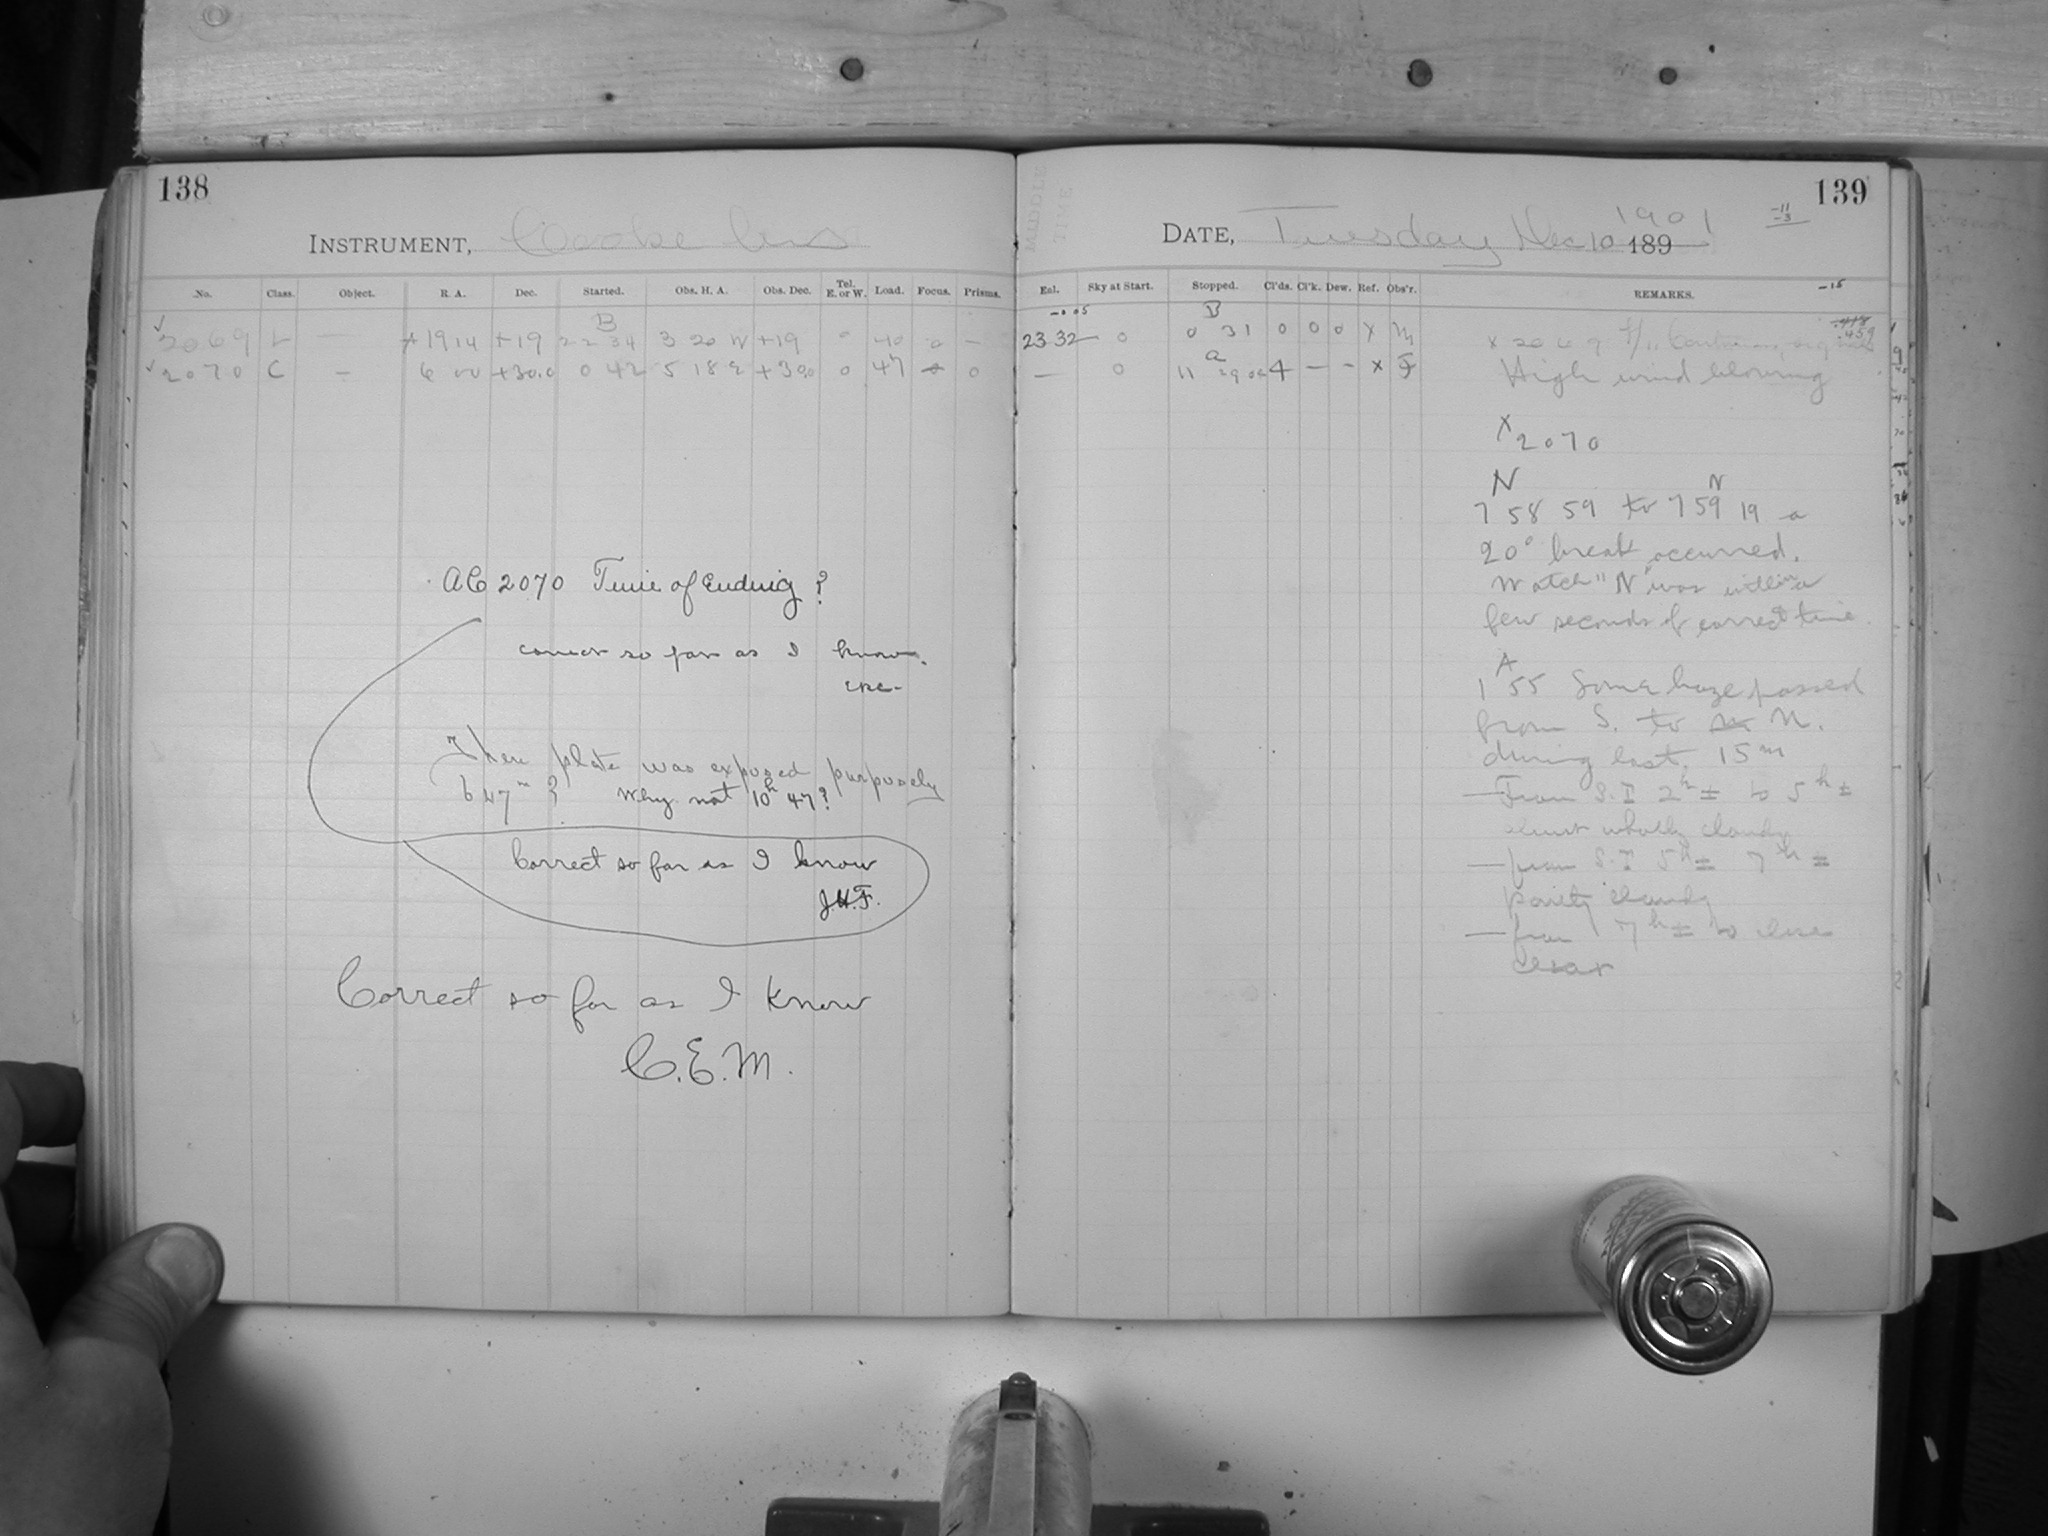 138
INSTRUMENT, Cooke lens
No. Class. Object. R. A. Dec. Started. Obs. H. A. Obs. Dec. Tel. E. or W. Load. Focus. Prisms.
B
2069 L — 19 14 +19 22 34 3 20 W +19 0 40 0 —
2070 C — 6 00 +30.0 0 42 5 18 E +30.0 0 47 0
AC 2070 Time of Ending?
correct so far as I know.
Then plate was exposed purposely
6 47 m? Why not 10h 47?
Correct so far as I know
J.H.F.
Correct so far as I know
C.E.M.
MIDDLE TIME
139
DATE, Tuesday Dec 10 1901 189
-11
-3
Eal. Sky at Start. Stopped. Cl'ds. Cl'k. Dew. Ref. Obs'r. REMARKS.
-15
-0 05 B
23 32 0 0 31 0 0 0 X M
x 2069
.459
— 0 11 a 4 — — x F
High wind blowing
x 2070
N N
7 58 59 to 7 59 19 a
20s break occurred.
Watch "N" was within a
few seconds of correct time.
A
1 55 Some haze passed
from S. to N.
during last 15m
— From S.T 2h± to 5h±
almost wholly cloudy
— from S.T 5h± 7h±
partly cloudy
— from 7h± to close
clear